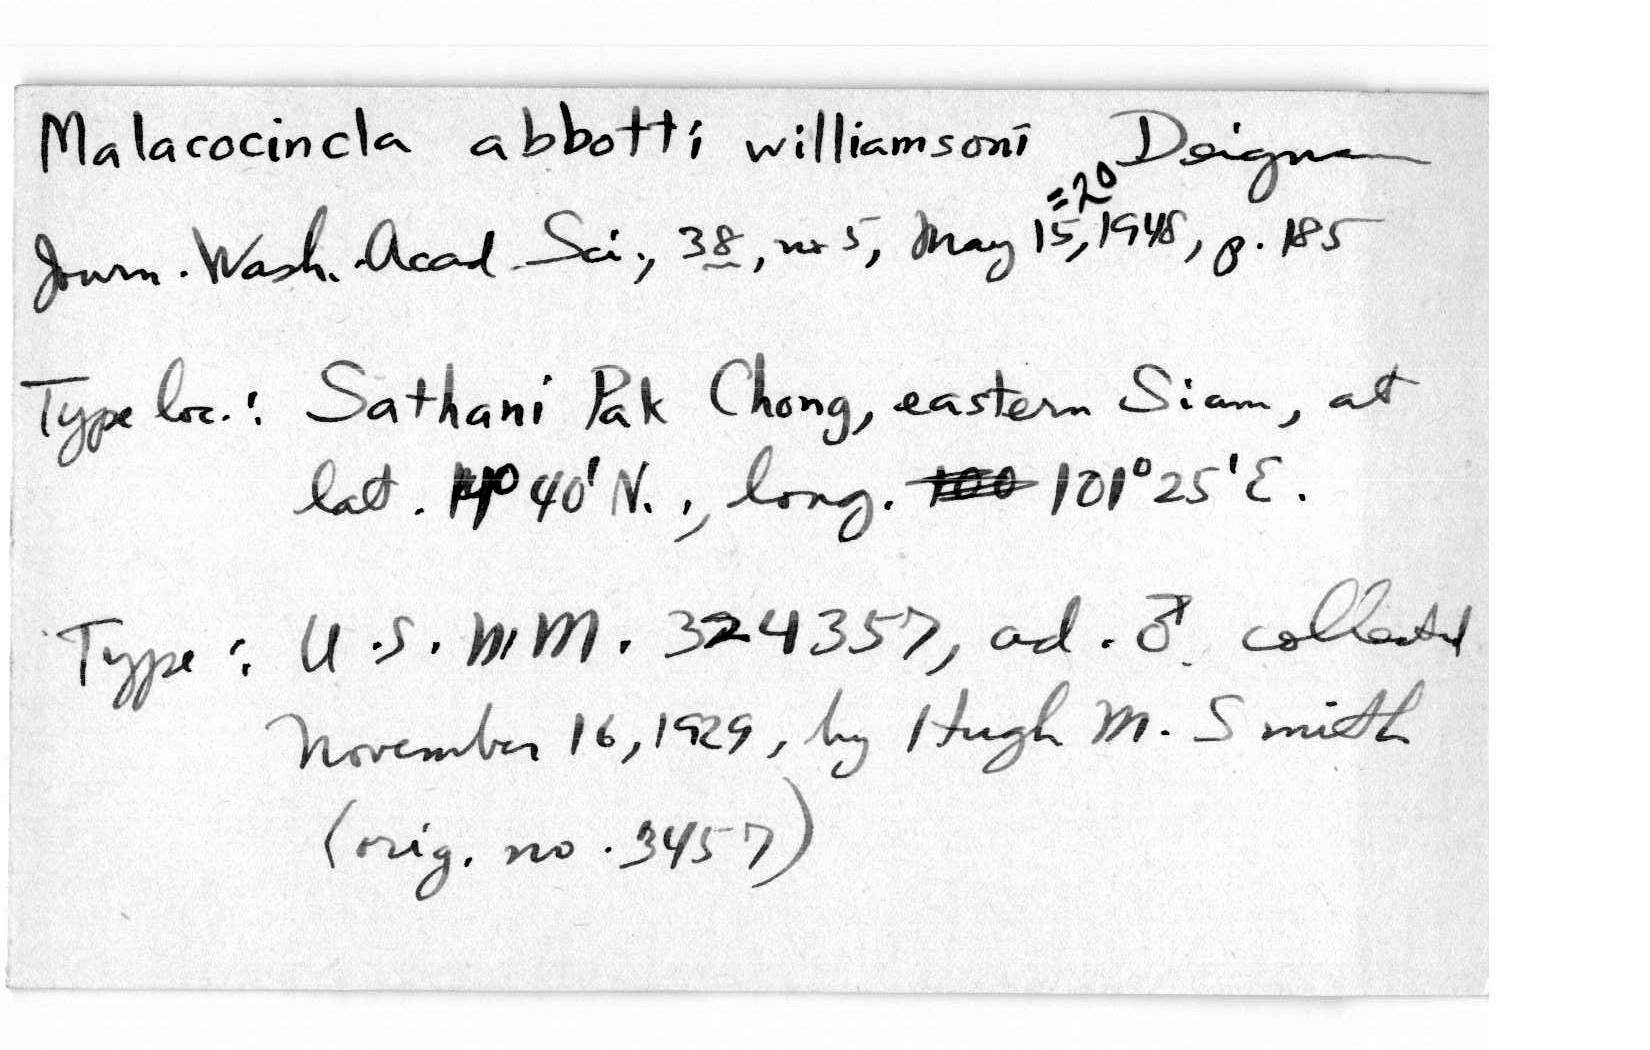 Malacocincla abbotti williamsoni Deignan
=20
Journ. Wash. Acad. Sci., 38, no 5, May 15, 1948, p. 185
Type loc.: Sathani Pak Chong, eastern Siam, at
lat. 14° 40' N., long. 100 101° 25' E.
Type: U.S.N.M. 324357, ad. ♂ collected
November 16, 1929, by Hugh M. Smith
(orig. no. 3457)